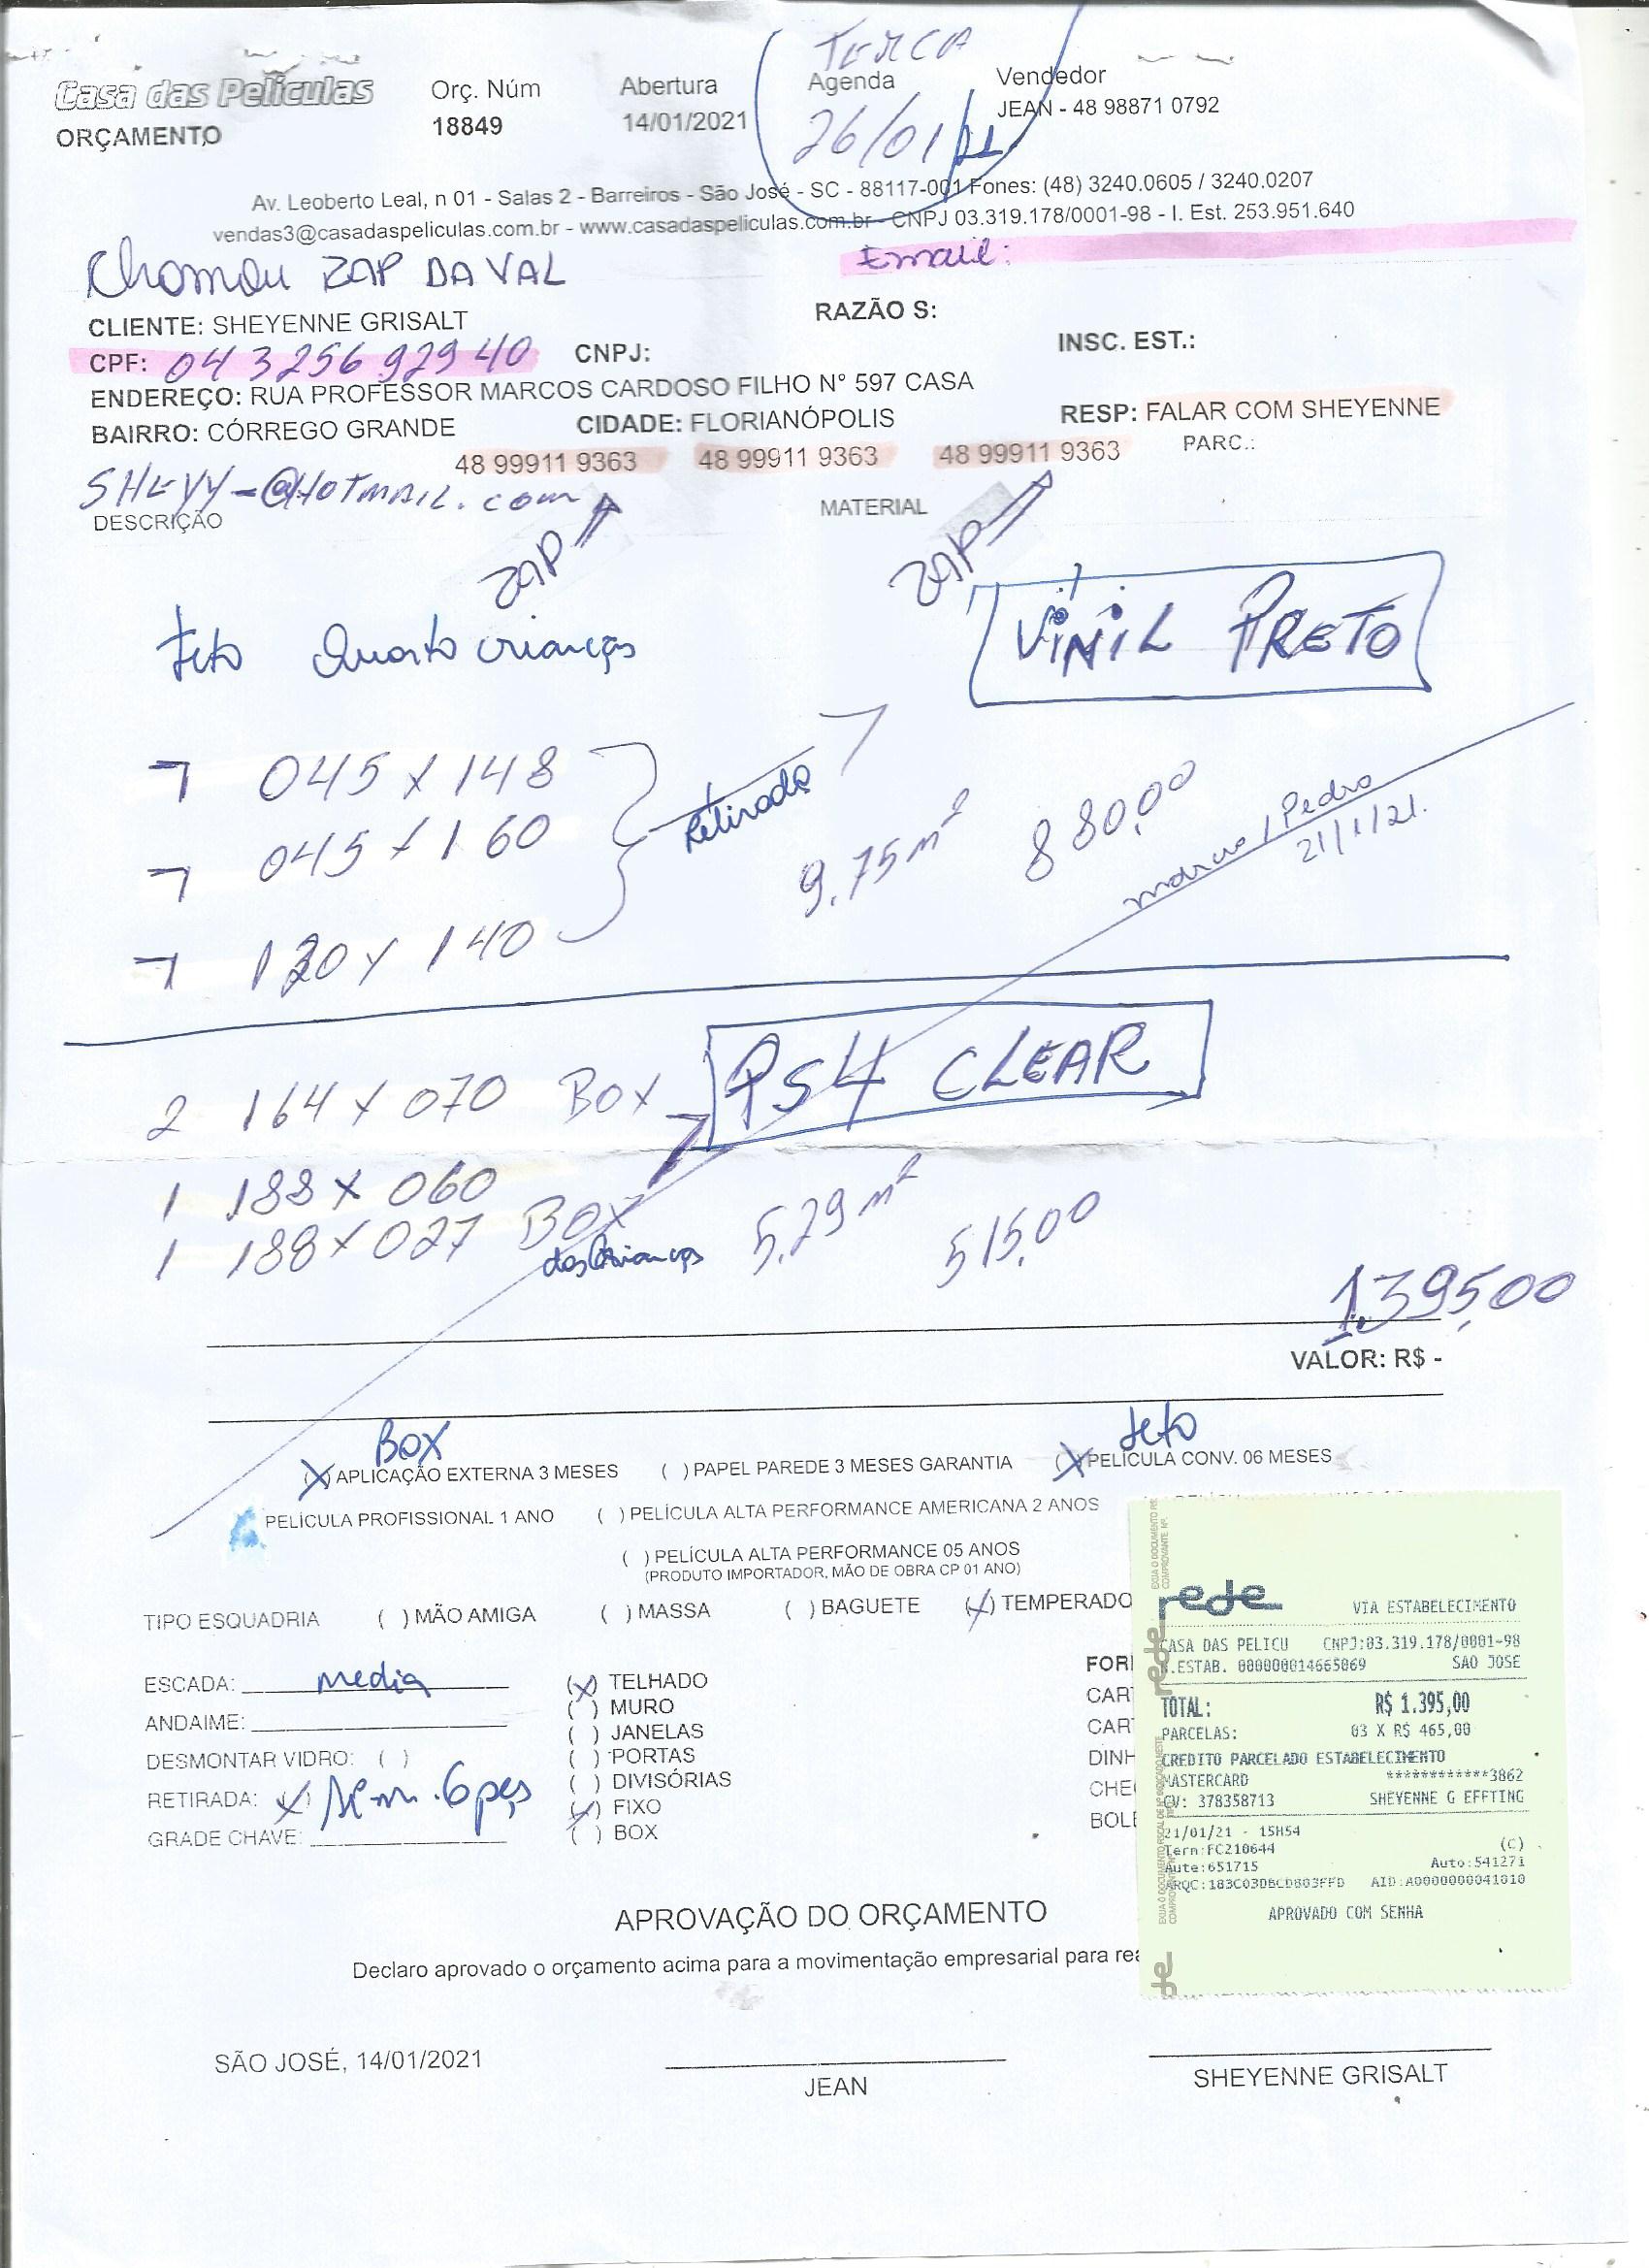 TERCA
Casa das Películas
Orç. Núm
Abertura
Agenda
Vendedor
ORÇAMENTO
18849
14/01/2021
26/01/21
JEAN - 48 98871 0792
Av. Leoberto Leal, n 01 - Salas 2 - Barreiros - São José - SC - 88117-001 Fones: (48) 3240.0605 / 3240.0207
vendas3@casadaspeliculas.com.br - www.casadaspeliculas.com.br - CNPJ 03.319.178/0001-98 - I. Est. 253.951.640
Chamou ZAP DA VAL
Email:
CLIENTE: SHEYENNE GRISALT
RAZÃO S:
CPF: 043256 929 40
CNPJ:
INSC. EST.:
ENDEREÇO: RUA PROFESSOR MARCOS CARDOSO FILHO N° 597 CASA
BAIRRO: CÓRREGO GRANDE
CIDADE: FLORIANÓPOLIS
RESP: FALAR COM SHEYENNE
48 99911 9363
48 99911 9363
48 99911 9363
PARC.:
SHEYY-@HOTMAIL.com
DESCRIÇÃO
MATERIAL
ZAP
ZAP
VINIL PRETO
teto Quarto crianças
7 045 x 148
Retirada
7 045 x 160
9.75 m²
880,00
marcio / Pedro
21/1/21.
7 120 x 140
2 164 x 070 BOX
PS4 CLEAR
1 188 x 060
1 188 x 027 BOX
das Crianças
5,29 m²
515,00
1.395,00
VALOR: R$ -
BOX
teto
(X) APLICAÇÃO EXTERNA 3 MESES
( ) PAPEL PAREDE 3 MESES GARANTIA
(X) PELÍCULA CONV. 06 MESES
PELÍCULA PROFISSIONAL 1 ANO
( ) PELÍCULA ALTA PERFORMANCE AMERICANA 2 ANOS
( ) PELÍCULA ALTA PERFORMANCE 05 ANOS
(PRODUTO IMPORTADOR, MÃO DE OBRA CP 01 ANO)
TIPO ESQUADRIA
( ) MÃO AMIGA
( ) MASSA
( ) BAGUETE
(X) TEMPERADO
ESCADA: media
ANDAIME:
DESMONTAR VIDRO: ( )
RETIRADA: (X) sem. 6 pçs
GRADE CHAVE:
(X) TELHADO
( ) MURO
( ) JANELAS
( ) PORTAS
( ) DIVISÓRIAS
(X) FIXO
( ) BOX
FOR
CAR
CAR
DINH
CHE
BOL
rede
VIA ESTABELECIMENTO
CASA DAS PELICU CNPJ:03.319.178/0001-98
N.ESTAB. 000000014665069 SAO JOSE
TOTAL: R$ 1.395,00
PARCELAS: 03 X R$ 465,00
CREDITO PARCELADO ESTABELECIMENTO
MASTERCARD ************3862
CV: 378358713 SHEYENNE G EFFTING
21/01/21 - 15H54
Term:FC210644 (C)
Aute:651715 Auto:541271
ARQC:183C03DBCD803FFD AID:A0000000041010
APROVADO COM SENHA
rede
APROVAÇÃO DO ORÇAMENTO
Declaro aprovado o orçamento acima para a movimentação empresarial para rea
SÃO JOSÉ, 14/01/2021
JEAN
SHEYENNE GRISALT